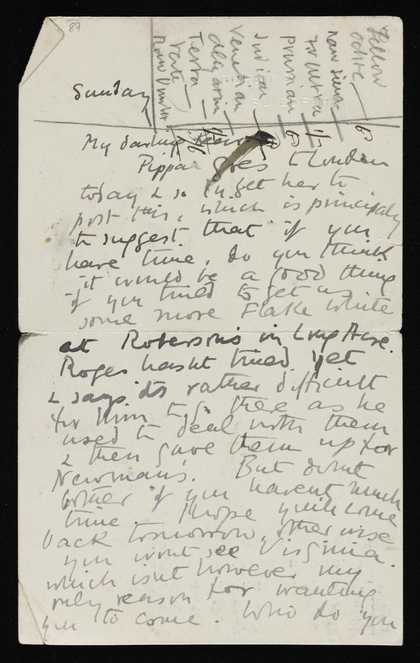 89
Yellow ochre
raw sienna
Prussian
Indian
Venetian
alizarin
Terra Verte
Raw Umber
Sunday
My darling
Pippa goes to London
today & so I'll get her to
post this, which is principally
to suggest that if you
have time, do you think
it would be a good thing
if you tried to get us
some more Flake White
at Roberson's in Long Acre.
Roger hasnt tried yet
& says its rather difficult
for him to go there as he
used to deal with them
& then gave them up for
Newman's. But dont
bother if you havent much
time. I hope you'll come
back tomorrow, otherwise
you wont see Virginia.
which isnt however my
only reason for wanting
you to come. Who do you